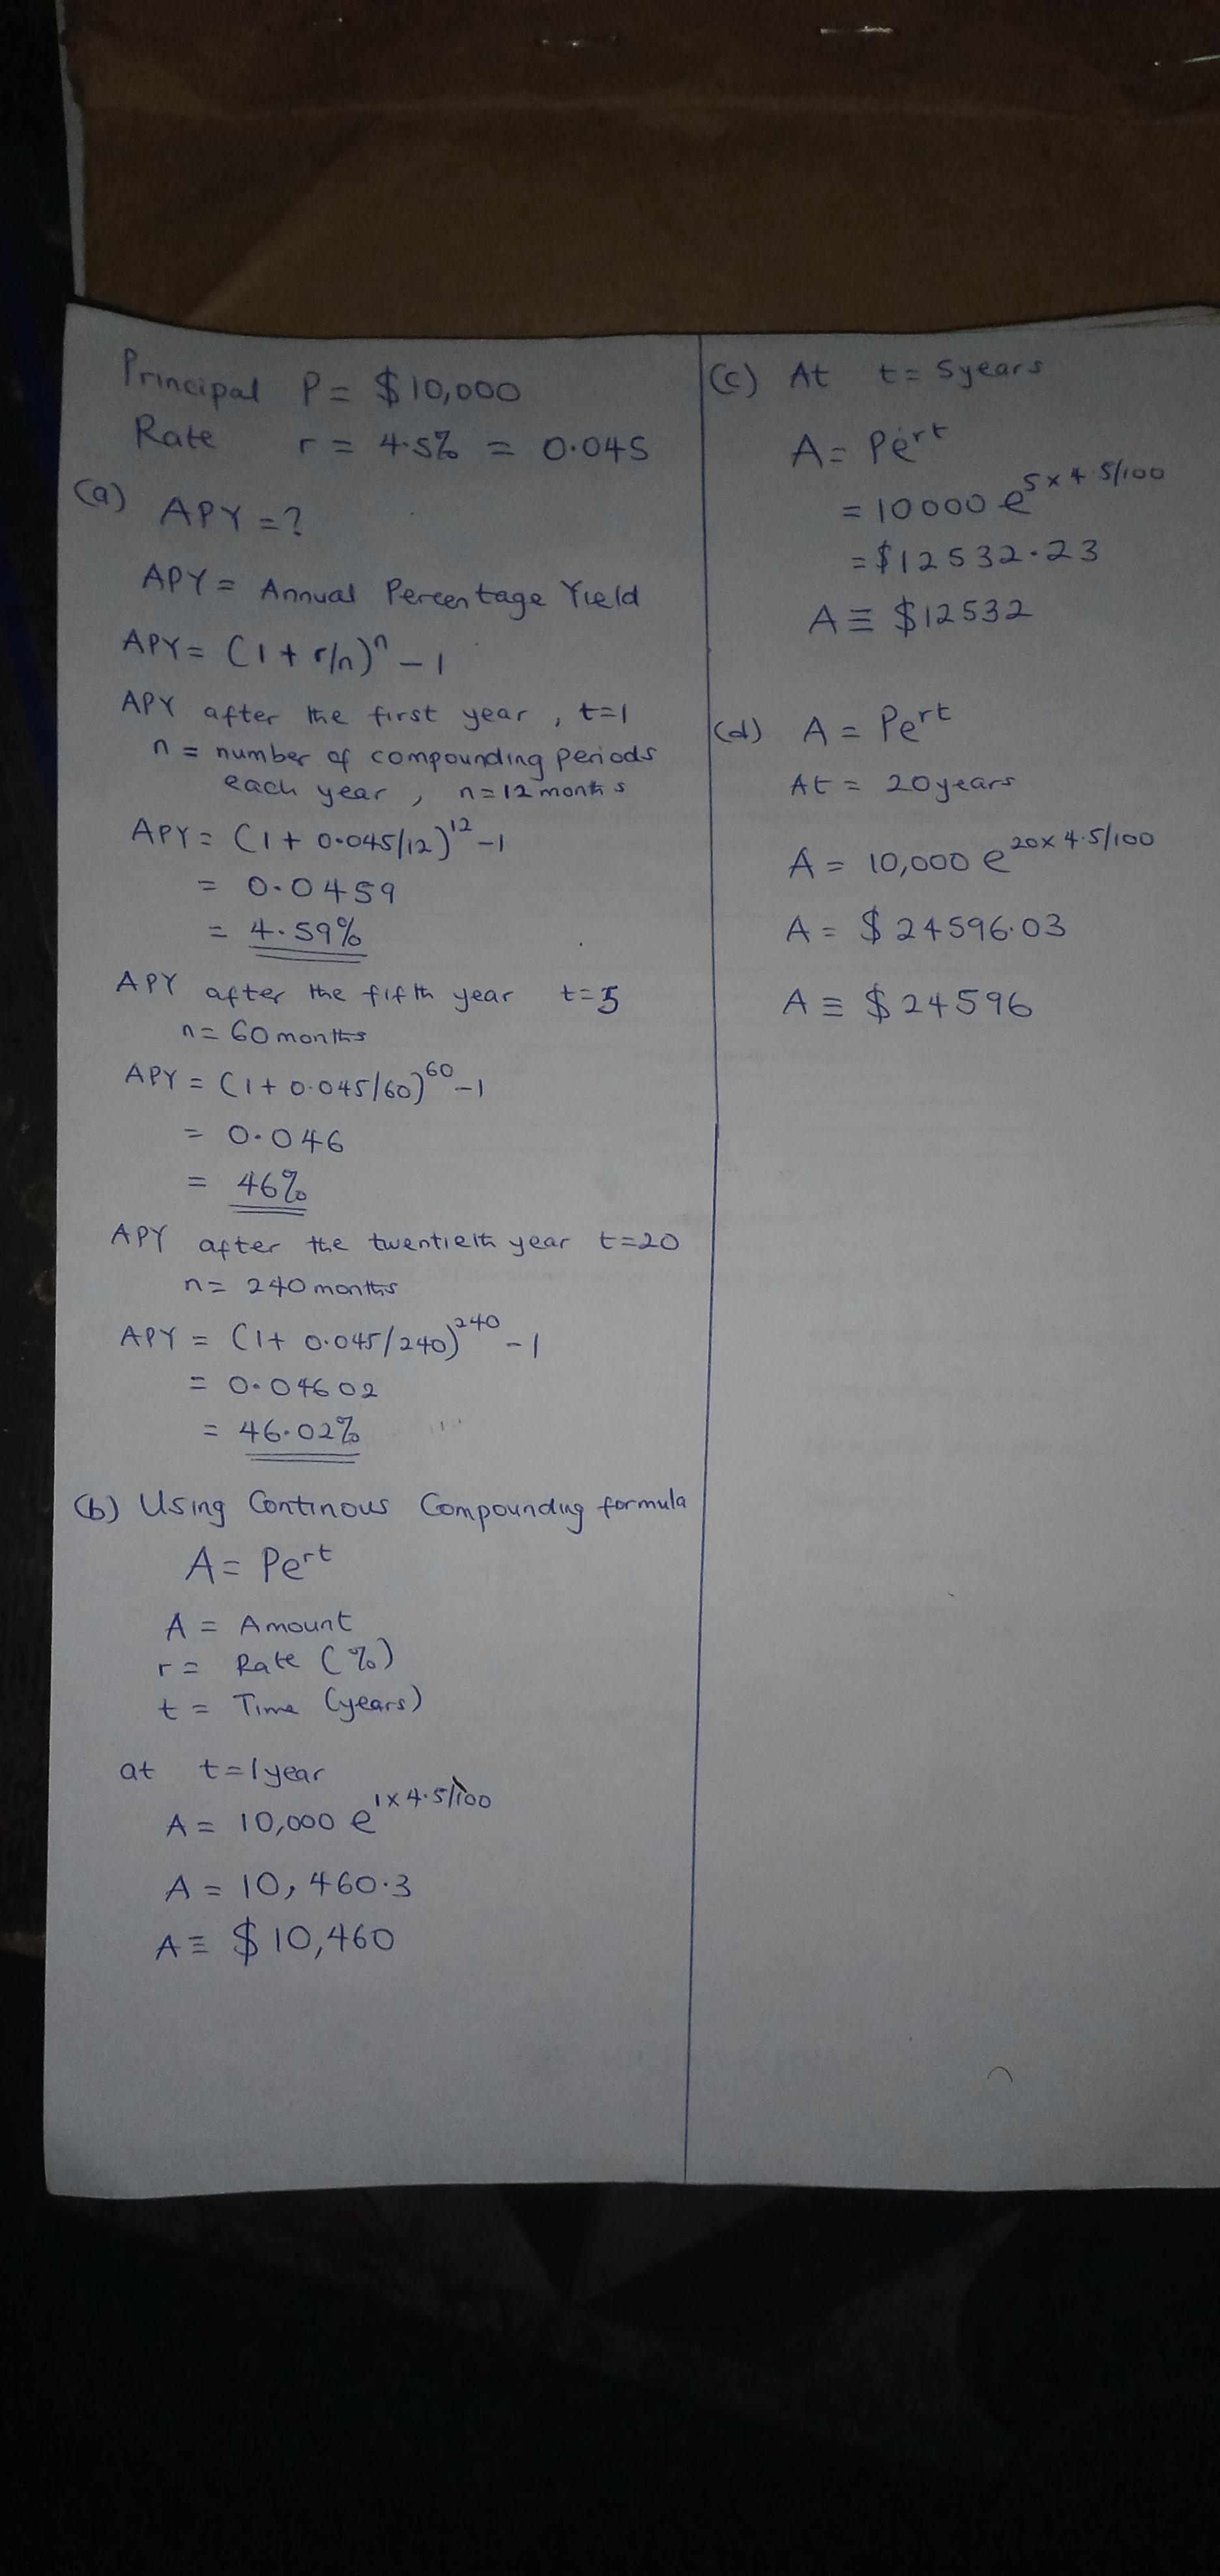 Principal P = $10,000
Rate r = 4.5% = 0.045
(a) APY = ?
APY = Annual Percentage Yield
APY = (1 + r/n)^n - 1
APY after the first year, t=1
n = number of compounding periods
each year, n=12 months
APY = (1 + 0.045/12)^12 - 1
= 0.0459
= 4.59%
APY after the fifth year t=5
n = 60 months
APY = (1 + 0.045/60)^60 - 1
= 0.046
= 46%
APY after the twentieth year t=20
n = 240 months
APY = (1 + 0.045/240)^240 - 1
= 0.04602
= 46.02%
(b) Using Continous Compounding formula
A = Pe^rt
A = Amount
r = Rate (%)
t = Time (years)
at t=1year
A = 10,000 e^1x4.5/100
A = 10,460.3
A ≡ $10,460
(c) At t = 5years
A = Pe^rt
= 10000 e^5x4.5/100
= $12532.23
A ≡ $12532
(d) A = Pe^rt
At = 20years
A = 10,000 e^20x4.5/100
A = $24596.03
A ≡ $24596